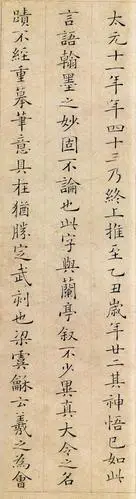 太元十一年年四十三乃終上推至乙丑歲廿二其神悟已如此
言語翰墨之妙固不論也此字與蘭亭叙不少異真大令之名
蹟不經重摹筆意具在猶勝定武刻也梁虞龢云羲之為會